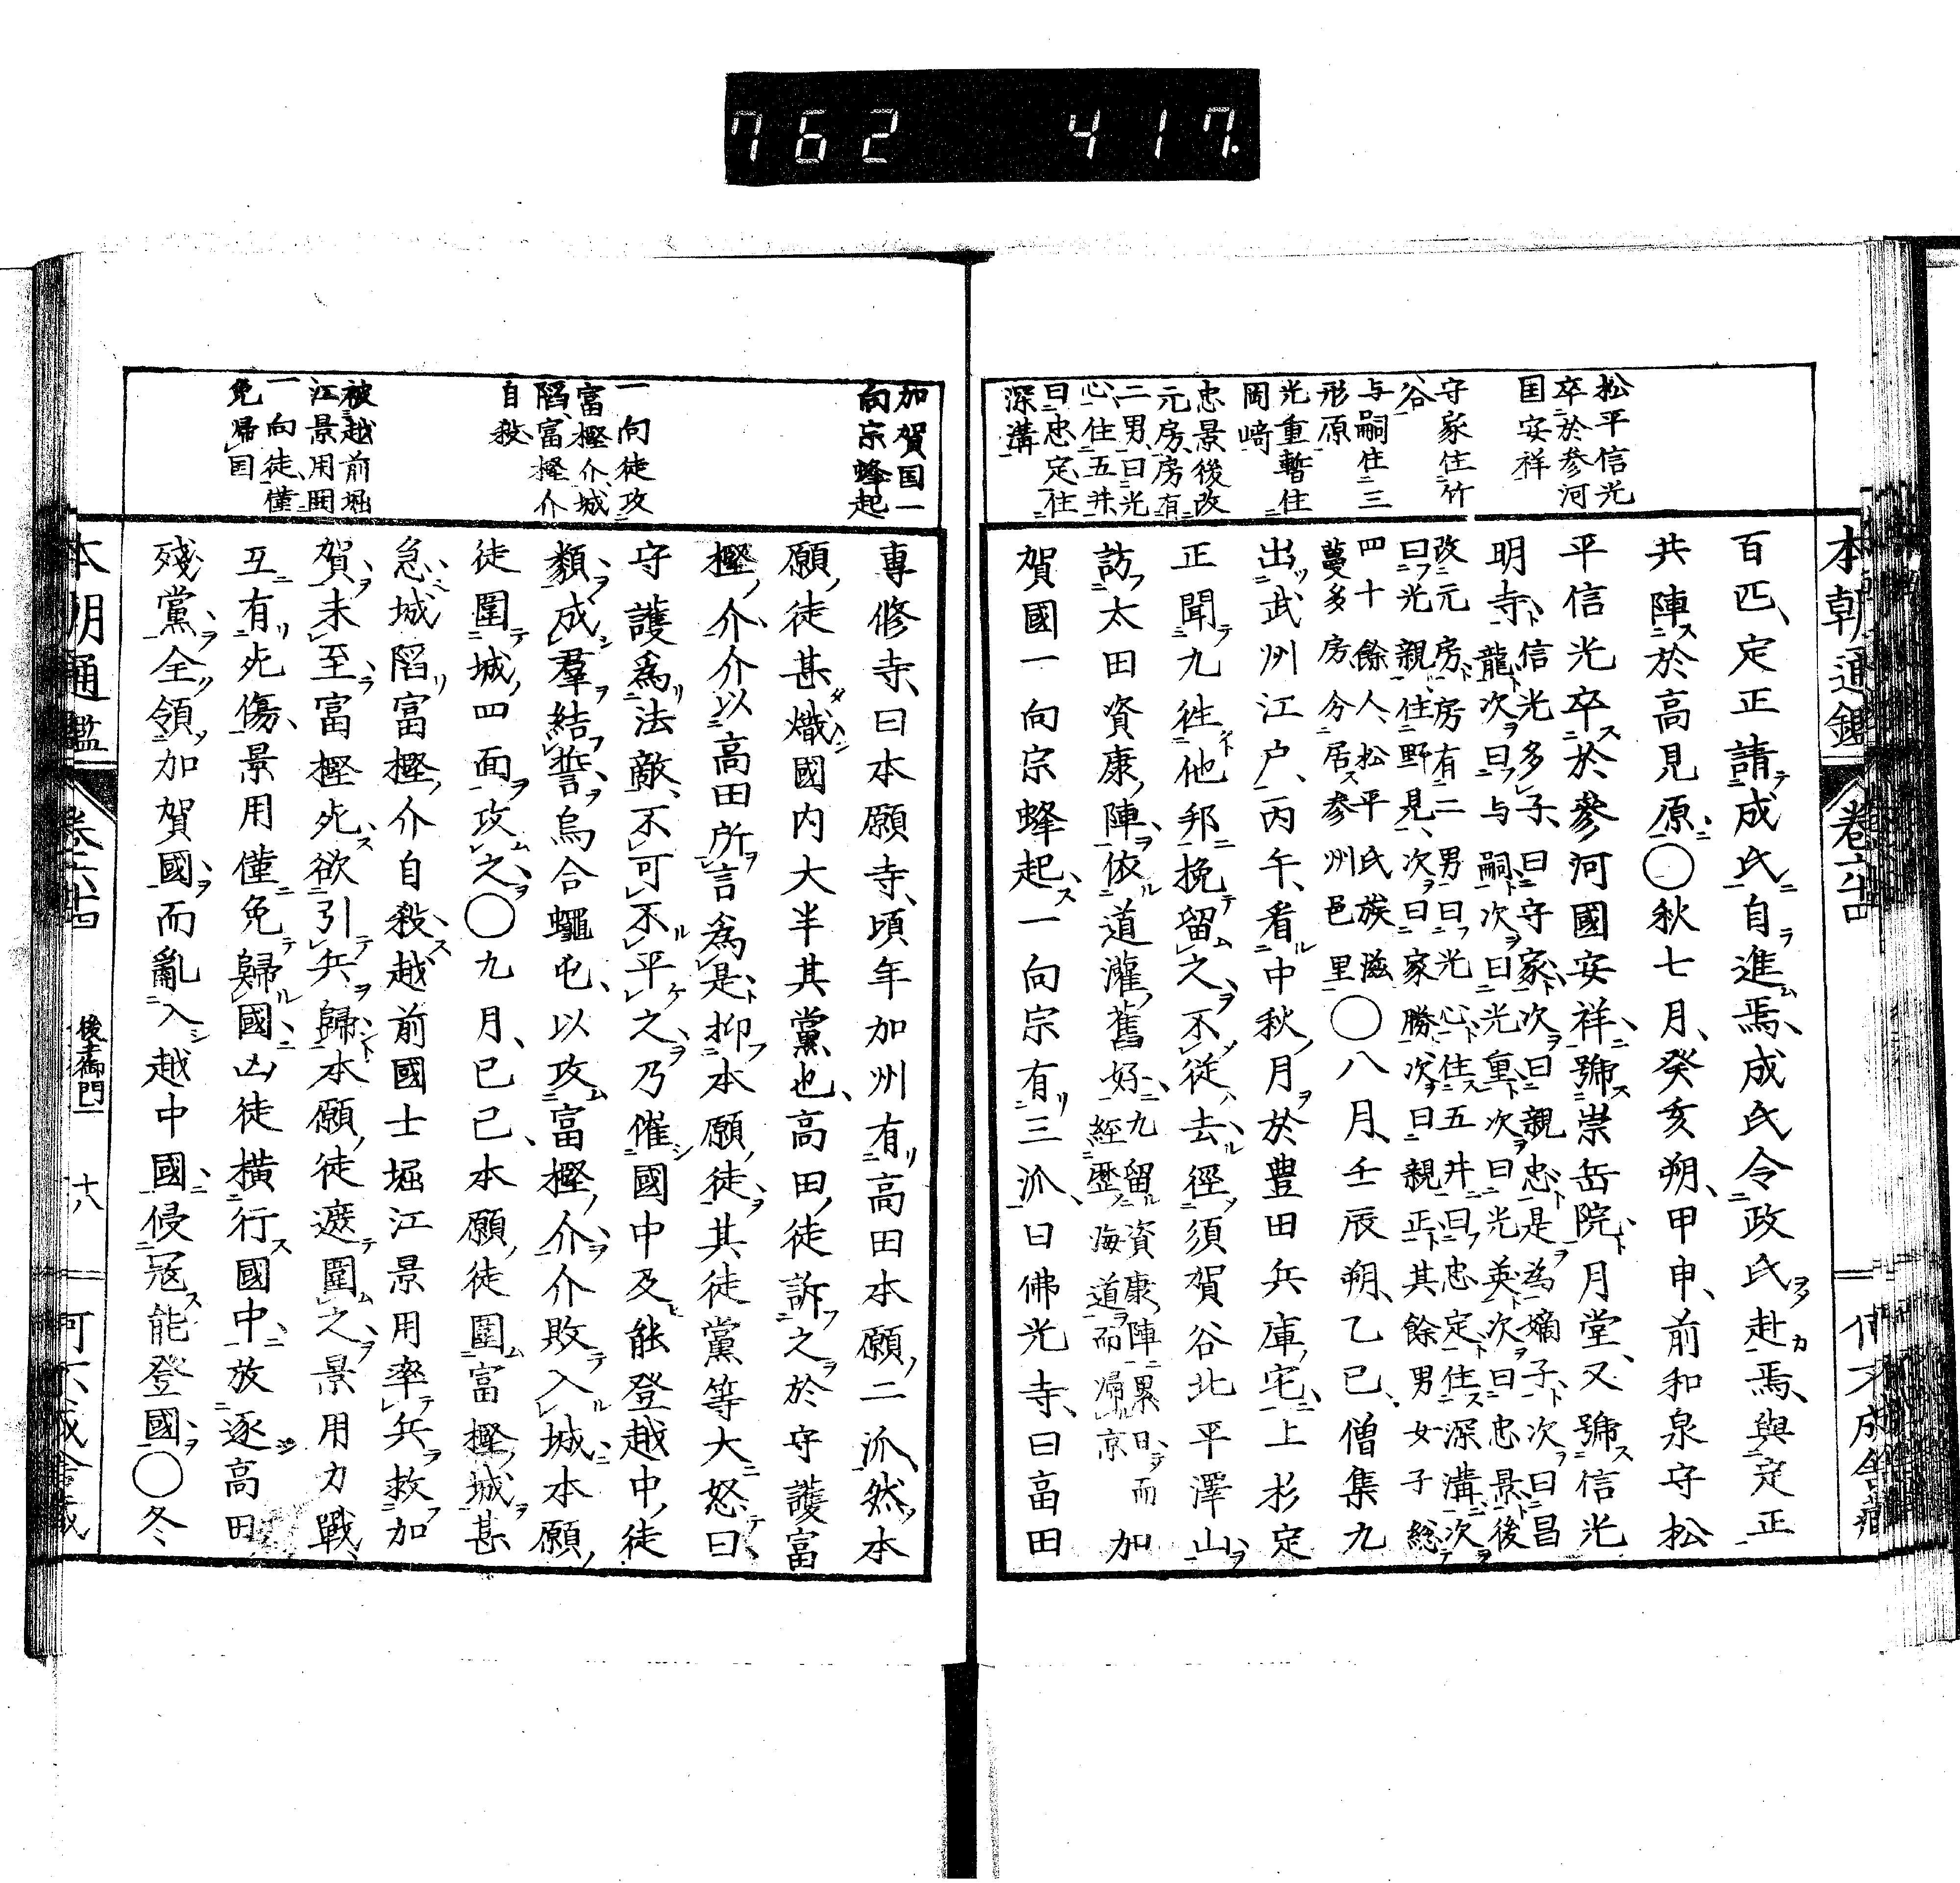 762 417.
本朝通鑑 卷六十四
松平信光
卒於參河
国安祥
守家住竹
谷
与嗣住三
形原
光重暫住
岡﨑
忠景後改
元房房有
二男曰光
心住五井
曰忠定住
深溝
百匹、定正請成氏自進焉、成氏令政氏赴焉、與定正
共陣於高見原、○秋七月、癸亥朔、甲申、前和泉守松
平信光卒於參河國安祥、號崇岳院月堂、又號信光
明寺、信光多子、曰守家、次曰親忠、是為嫡子、次曰昌
龍、次曰与嗣、次曰光重、次曰光英、次曰忠景、後
改元房、房有二男、曰光心、住五井、曰忠定、住深溝、次
曰光親、住野見、次曰家勝、次曰親正、其餘男女子総
四十餘人、松平氏族滋
蔓多房、分居参州邑里、
○八月、壬辰朔、乙巳、僧集九
出武州江户、丙午、看中秋月於豊田兵庫宅、上杉定
正聞九往他邦、挽留之、不從去、徑須賀谷北平澤山、
訪太田資康陣、依道灌舊好、
九留資康陣累日而
經歷海道而帰京
加
賀國一向宗蜂起、一向宗有三派、曰佛光寺、曰高田
加賀国一
向宗蜂起
一向徒攻
富樫介城
陷、富樫介
自殺
被越前堀
江景用圍
一向徒、僅
免帰国
專修寺、曰本願寺、頃年加州有高田本願二派、然本
願徒甚熾、國内大半其黨也、高田徒訴之於守護富
樫介、介以高田所言為是、抑本願徒、其徒黨等大怒曰、
守護為法敵、不可不平之、乃催國中及能登越中徒
類、成羣結誓、烏合蠅屯、以攻富樫介、介敗入城、本願
徒圍城、四面攻之、○九月、己巳、本願徒圍富樫城甚
急、城陷、富樫介自殺、越前國士堀江景用率兵救加
賀、未至富樫死、欲引兵歸、本願徒遮圍之、景用力戰、
互有死傷、景用僅免歸國、凶徒横行國中、放逐高田
殘黨、全領加賀國、而亂入越中國、侵寇能登國、○冬
本朝通鑑 卷六十四 後土御門二 十八